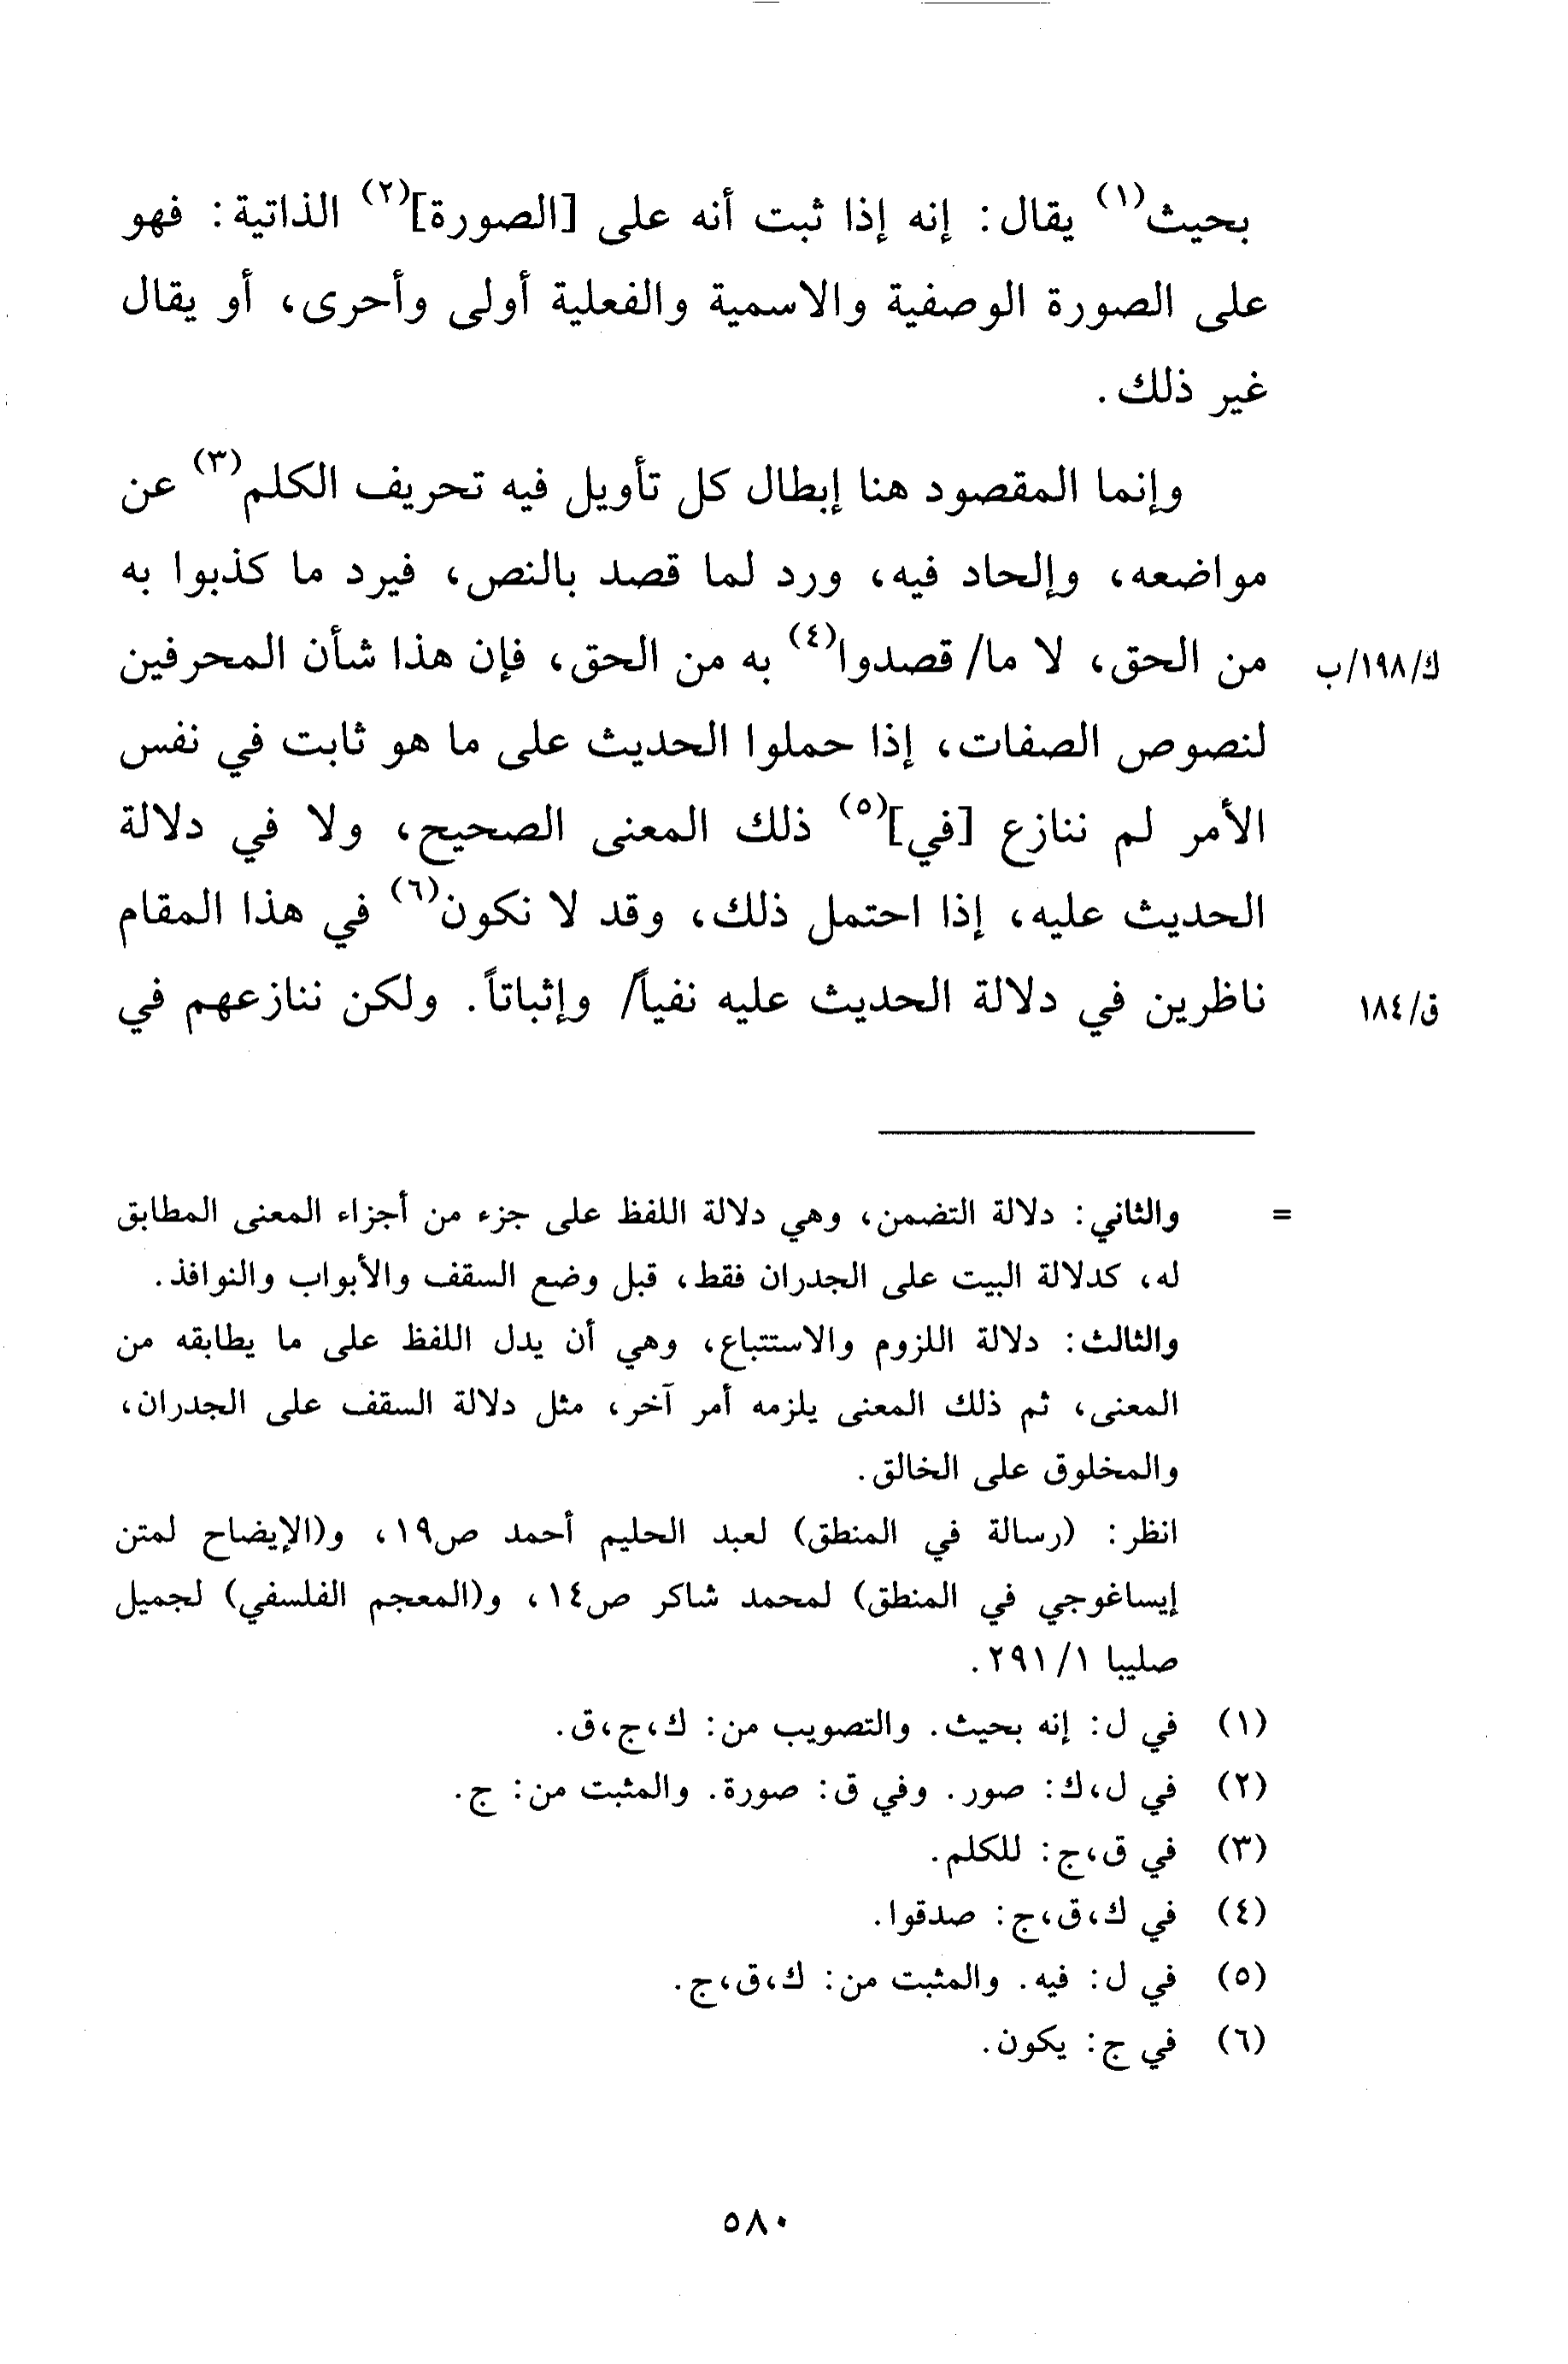 بحيث(١) يقال: إنه إذا ثبت أنه على [الصورة](٢) الذاتية: فهو
على الصورة الوصفية والاسمية والفعلية أولى وأحرى، أو يقال
غير ذلك.
وإنما المقصود هنا إبطال كل تأويل فيه تحريف الكلم(٣) عن
مواضعه، وإلحاد فيه، ورد لما قصد بالنص، فيرد ما كذبوا به
من الحق، لا ما/ قصدوا(٤) به من الحق، فإن هذا شأن المحرفين ك/١٩٨/ب
لنصوص الصفات، إذا حملوا الحديث على ما هو ثابت في نفس
الأمر لم ننازع [في](٥) ذلك المعنى الصحيح، ولا في دلالة
الحديث عليه، إذا احتمل ذلك، وقد لا نكون(٦) في هذا المقام
ناظرين في دلالة الحديث عليه نفياً/ وإثباتاً. ولكن ننازعهم في ق/١٨٤
= والثاني: دلالة التضمن، وهي دلالة اللفظ على جزء من أجزاء المعنى المطابق
له، كدلالة البيت على الجدران فقط، قبل وضع السقف والأبواب والنوافذ.
والثالث: دلالة اللزوم والاستتباع، وهي أن يدل اللفظ على ما يطابقه من
المعنى، ثم ذلك المعنى يلزمه أمر آخر، مثل دلالة السقف على الجدران،
والمخلوق على الخالق.
انظر: (رسالة في المنطق) لعبد الحليم أحمد ص١٩، و(الإيضاح لمتن
إيساغوجي في المنطق) لمحمد شاكر ص١٤، و(المعجم الفلسفي) لجميل
صليبا ٢٩١/١.
(١) في ل: إنه بحيث. والتصويب من: ك،ج،ق.
(٢) في ل،ك: صور. وفي ق: صورة. والمثبت من: ج.
(٣) في ق،ج: للكلم.
(٤) في ك،ق،ج: صدقوا.
(٥) في ل: فيه. والمثبت من: ك،ق،ج.
(٦) في ج: يكون.
٥٨٠